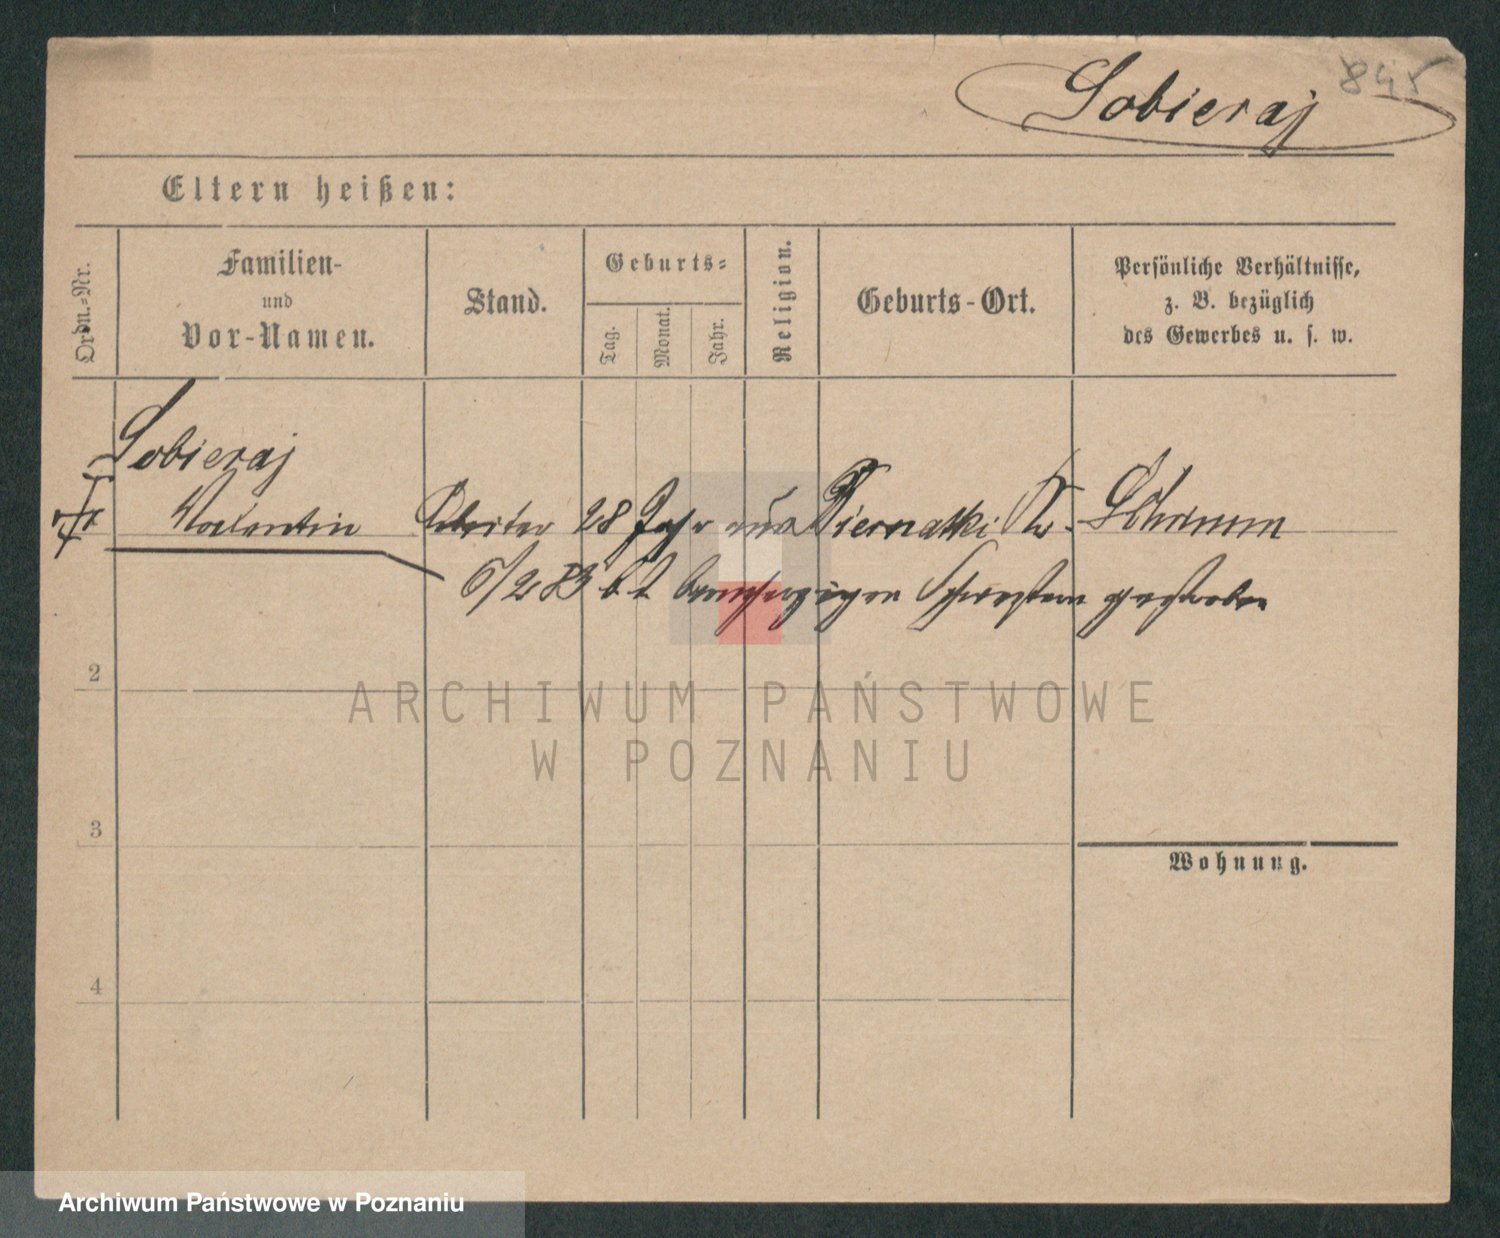 845
Sobieraj
Eltern heißen:
Ordn.-Nr.
Familien-
und
Vor-Namen.
Stand.
Geburts-
Tag.
Monat.
Jahr.
Religion.
Geburts-Ort.
Persönliche Verhältnisse,
z. B. bezüglich
des Gewerbes u. s. w.
Sobieraj
Valentin Arbeiter 28 Jahr aus Biernatki Kr. Schrimm
6/2 83 b. d. barmherzigen Schwestern gestorben
2
ARCHIWUM PAŃSTWOWE
W POZNANIU
3
Wohnung.
4
Archiwum Państwowe w Poznaniu